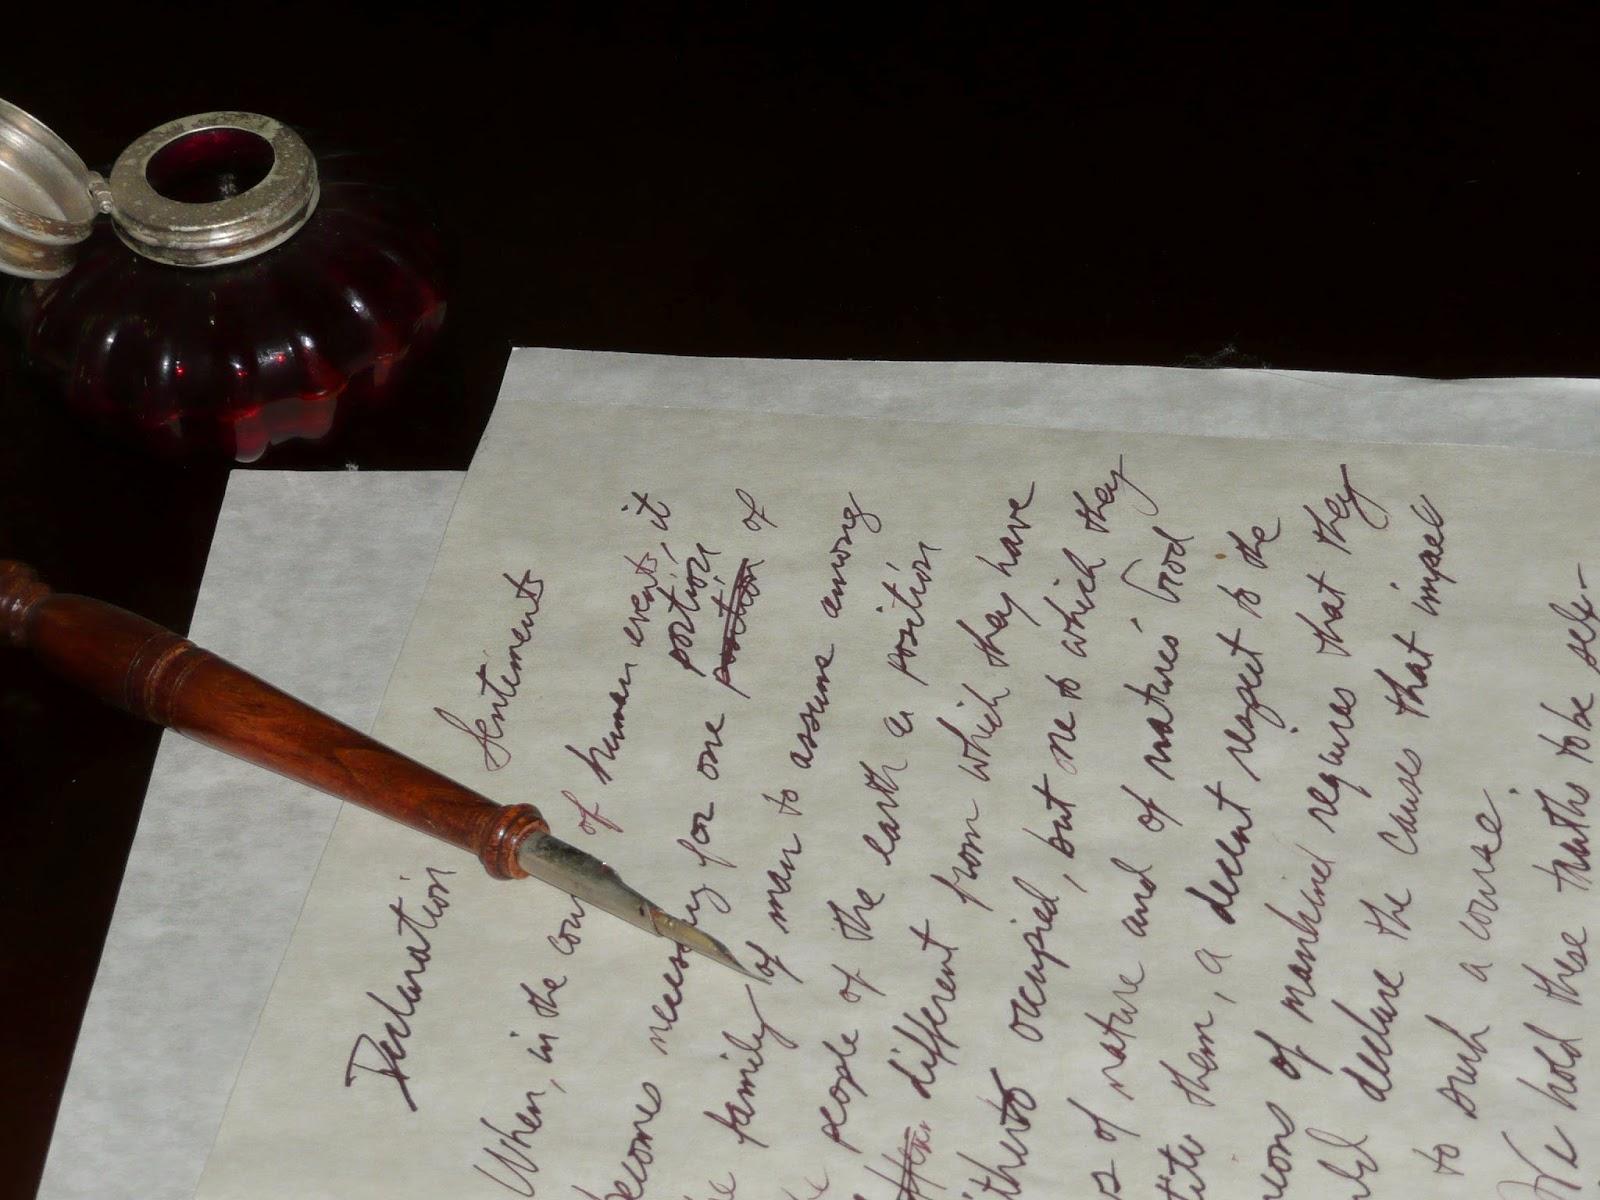 Declaration Sentiments
When, in the cour of human events, it
becomes necessary for one portion
portion of
family of man to assume among
people of the earth a position
different from which they have
occupied, but one to which they
of nature and of nature's God
them, a decent respect to the
of mankind requires that they
declare the causes that impel
to such a course.
We hold these truths to be self-